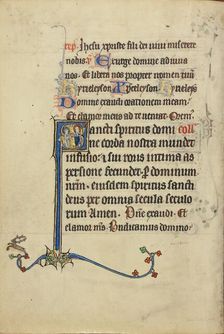 Ihesu xpriste fili dei uiui miserere
nobis Exurge domine adiuua
nos Et libera nos propter nomen tuum
kyrieleyson Xpeleyson kyrieleys
Domine exaudi orationem meam
Et clamor meus ad te ueniat Orem
Sancti spiritus domine
corda nostra mundet
infusio et sui roris intima as
persione fecundet Per dominum
eiusdem spiritus sancti
deus per omnia secula seculo
rum Amen Dne exaudi Et
clamor ms Bndicamus domino